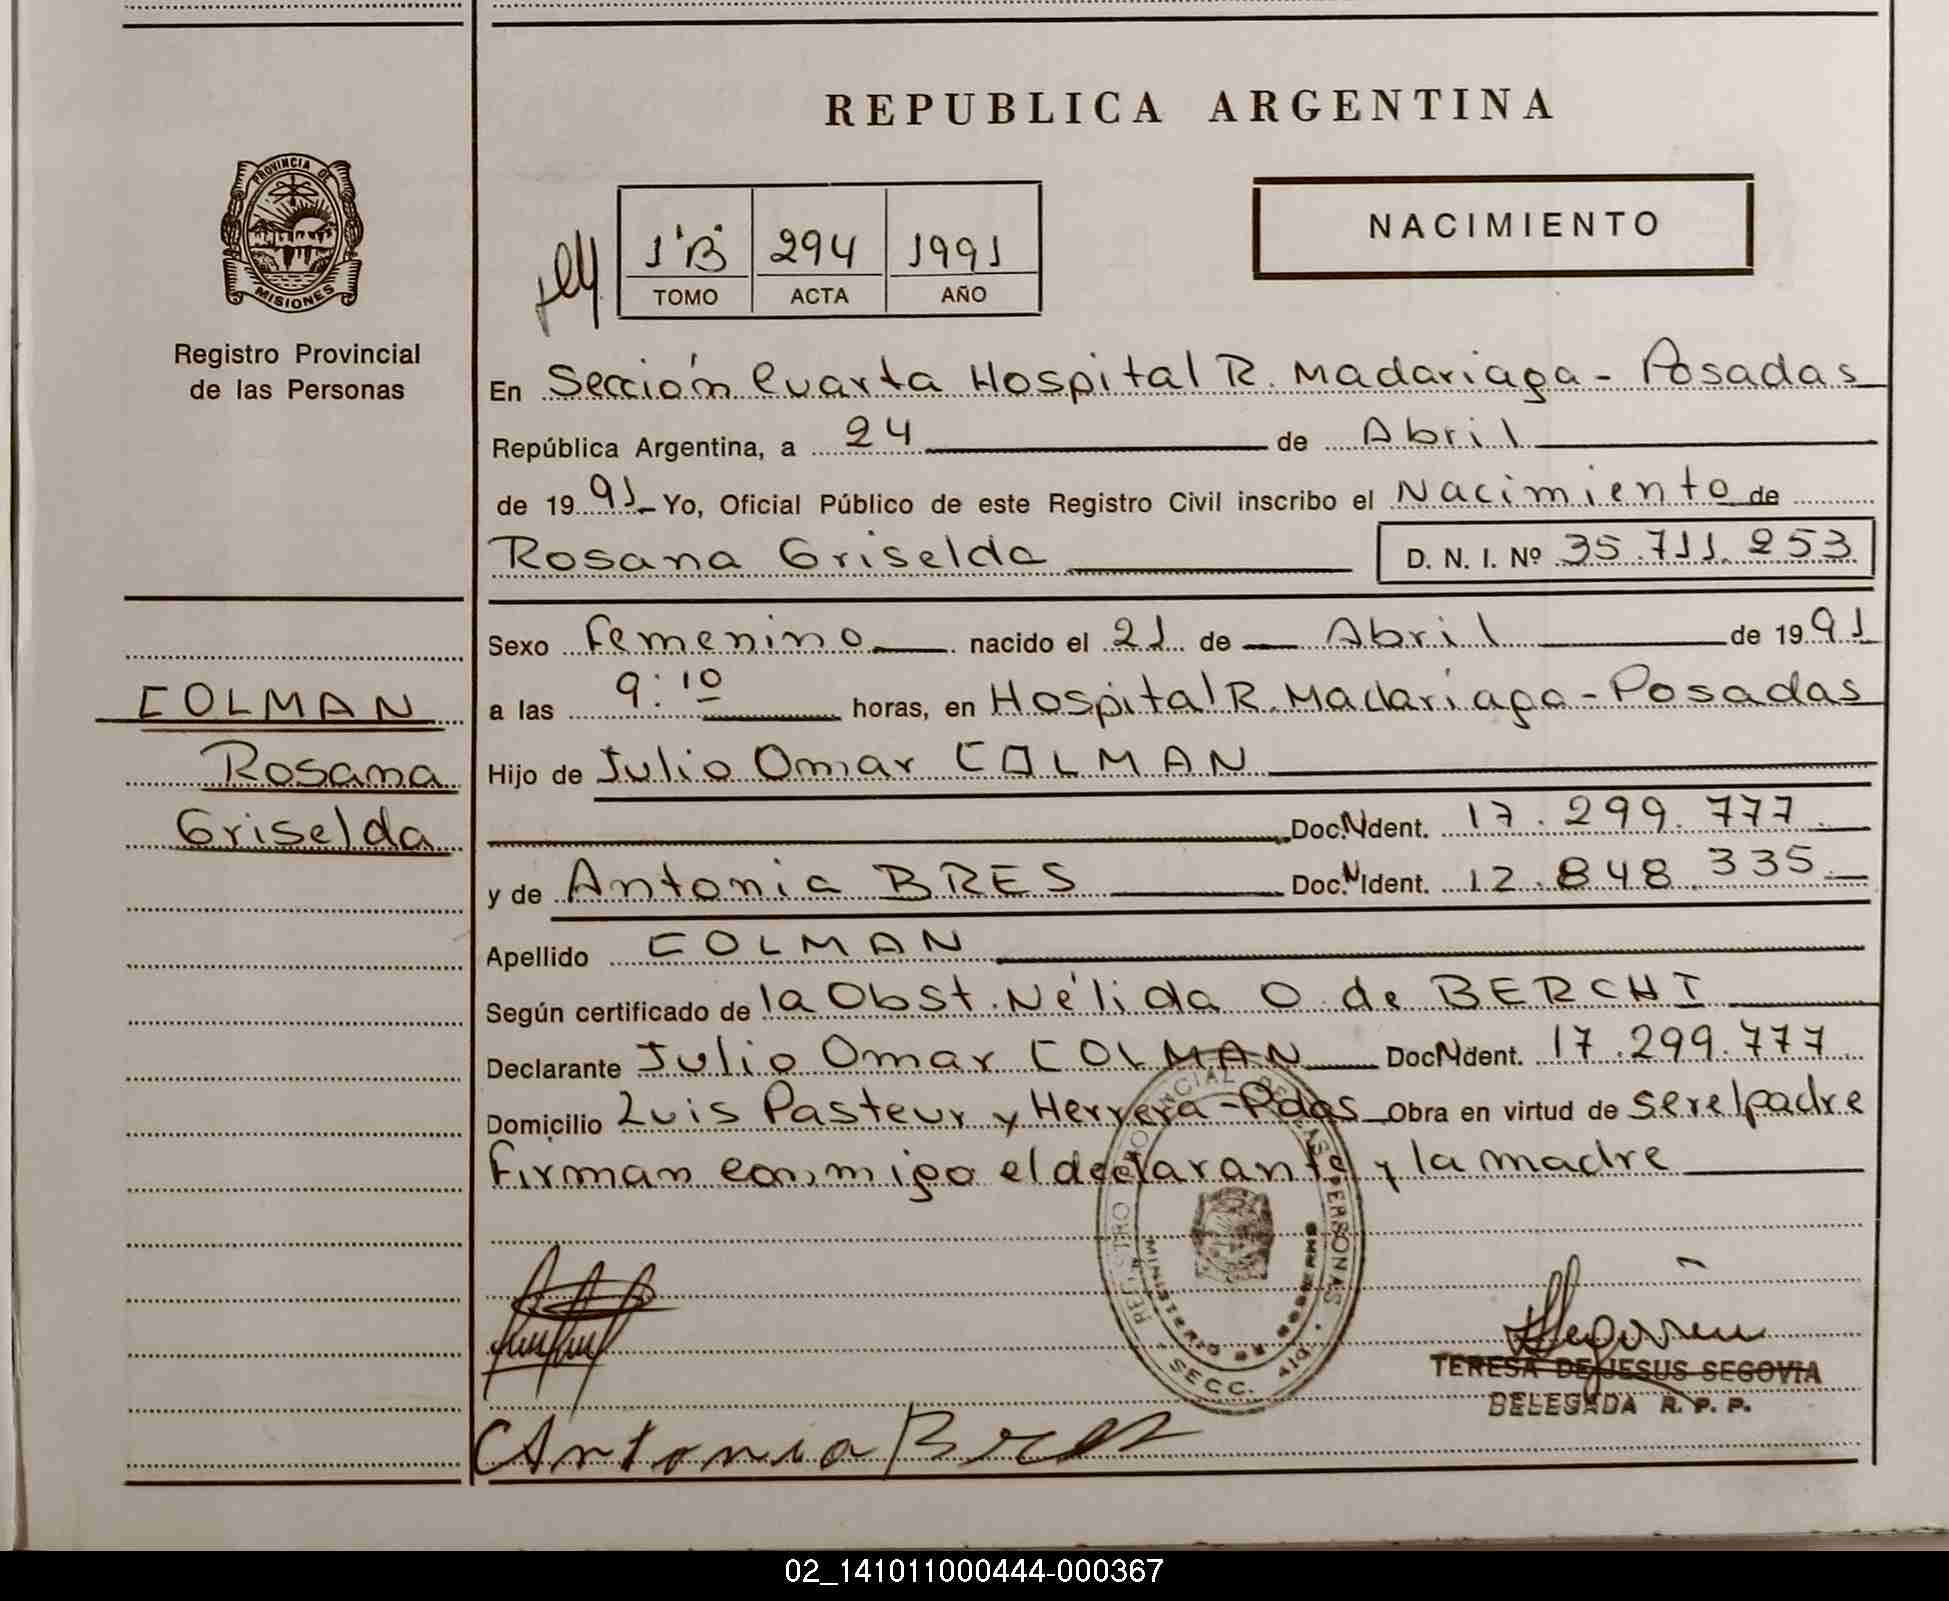 REPUBLICA ARGENTINA
PROVINCIA DE
MISIONES
Registro Provincial
de las Personas
1 "B" 294 1991
TOMO ACTA AÑO
NACIMIENTO
En Sección Cuarta Hospital R. Madariaga - Posadas
República Argentina, a 24 de Abril
de 1991 Yo, Oficial Público de este Registro Civil inscribo el Nacimiento de
Rosana Griselda D. N. I. Nº 35.711.253
Sexo Femenino nacido el 21 de Abril de 1991
a las 9:10 horas, en Hospital R. Madariaga - Posadas
Hijo de Julio Omar COLMAN
Doc. N Ident. 17.299.777
y de Antonia BRES Doc. N Ident. 12.848.335
Apellido COLMAN
Según certificado de la Obst. Nélida O. de BERCHI
Declarante Julio Omar COLMAN Doc N Ident. 17.299.777
Domicilio Luis Pasteur y Herrera - Pdas Obra en virtud de ser el padre
Firman conmigo el declarante y la madre
COLMAN
Rosana
Griselda
REGISTRO PROVINCIAL DE LAS PERSONAS
MINISTERIO DE GOBIERNO
SECC. 4ta
TERESA DE JESUS SEGOVIA
DELEGADA R. P. P.
Antonia Bres
02_141011000444-000367